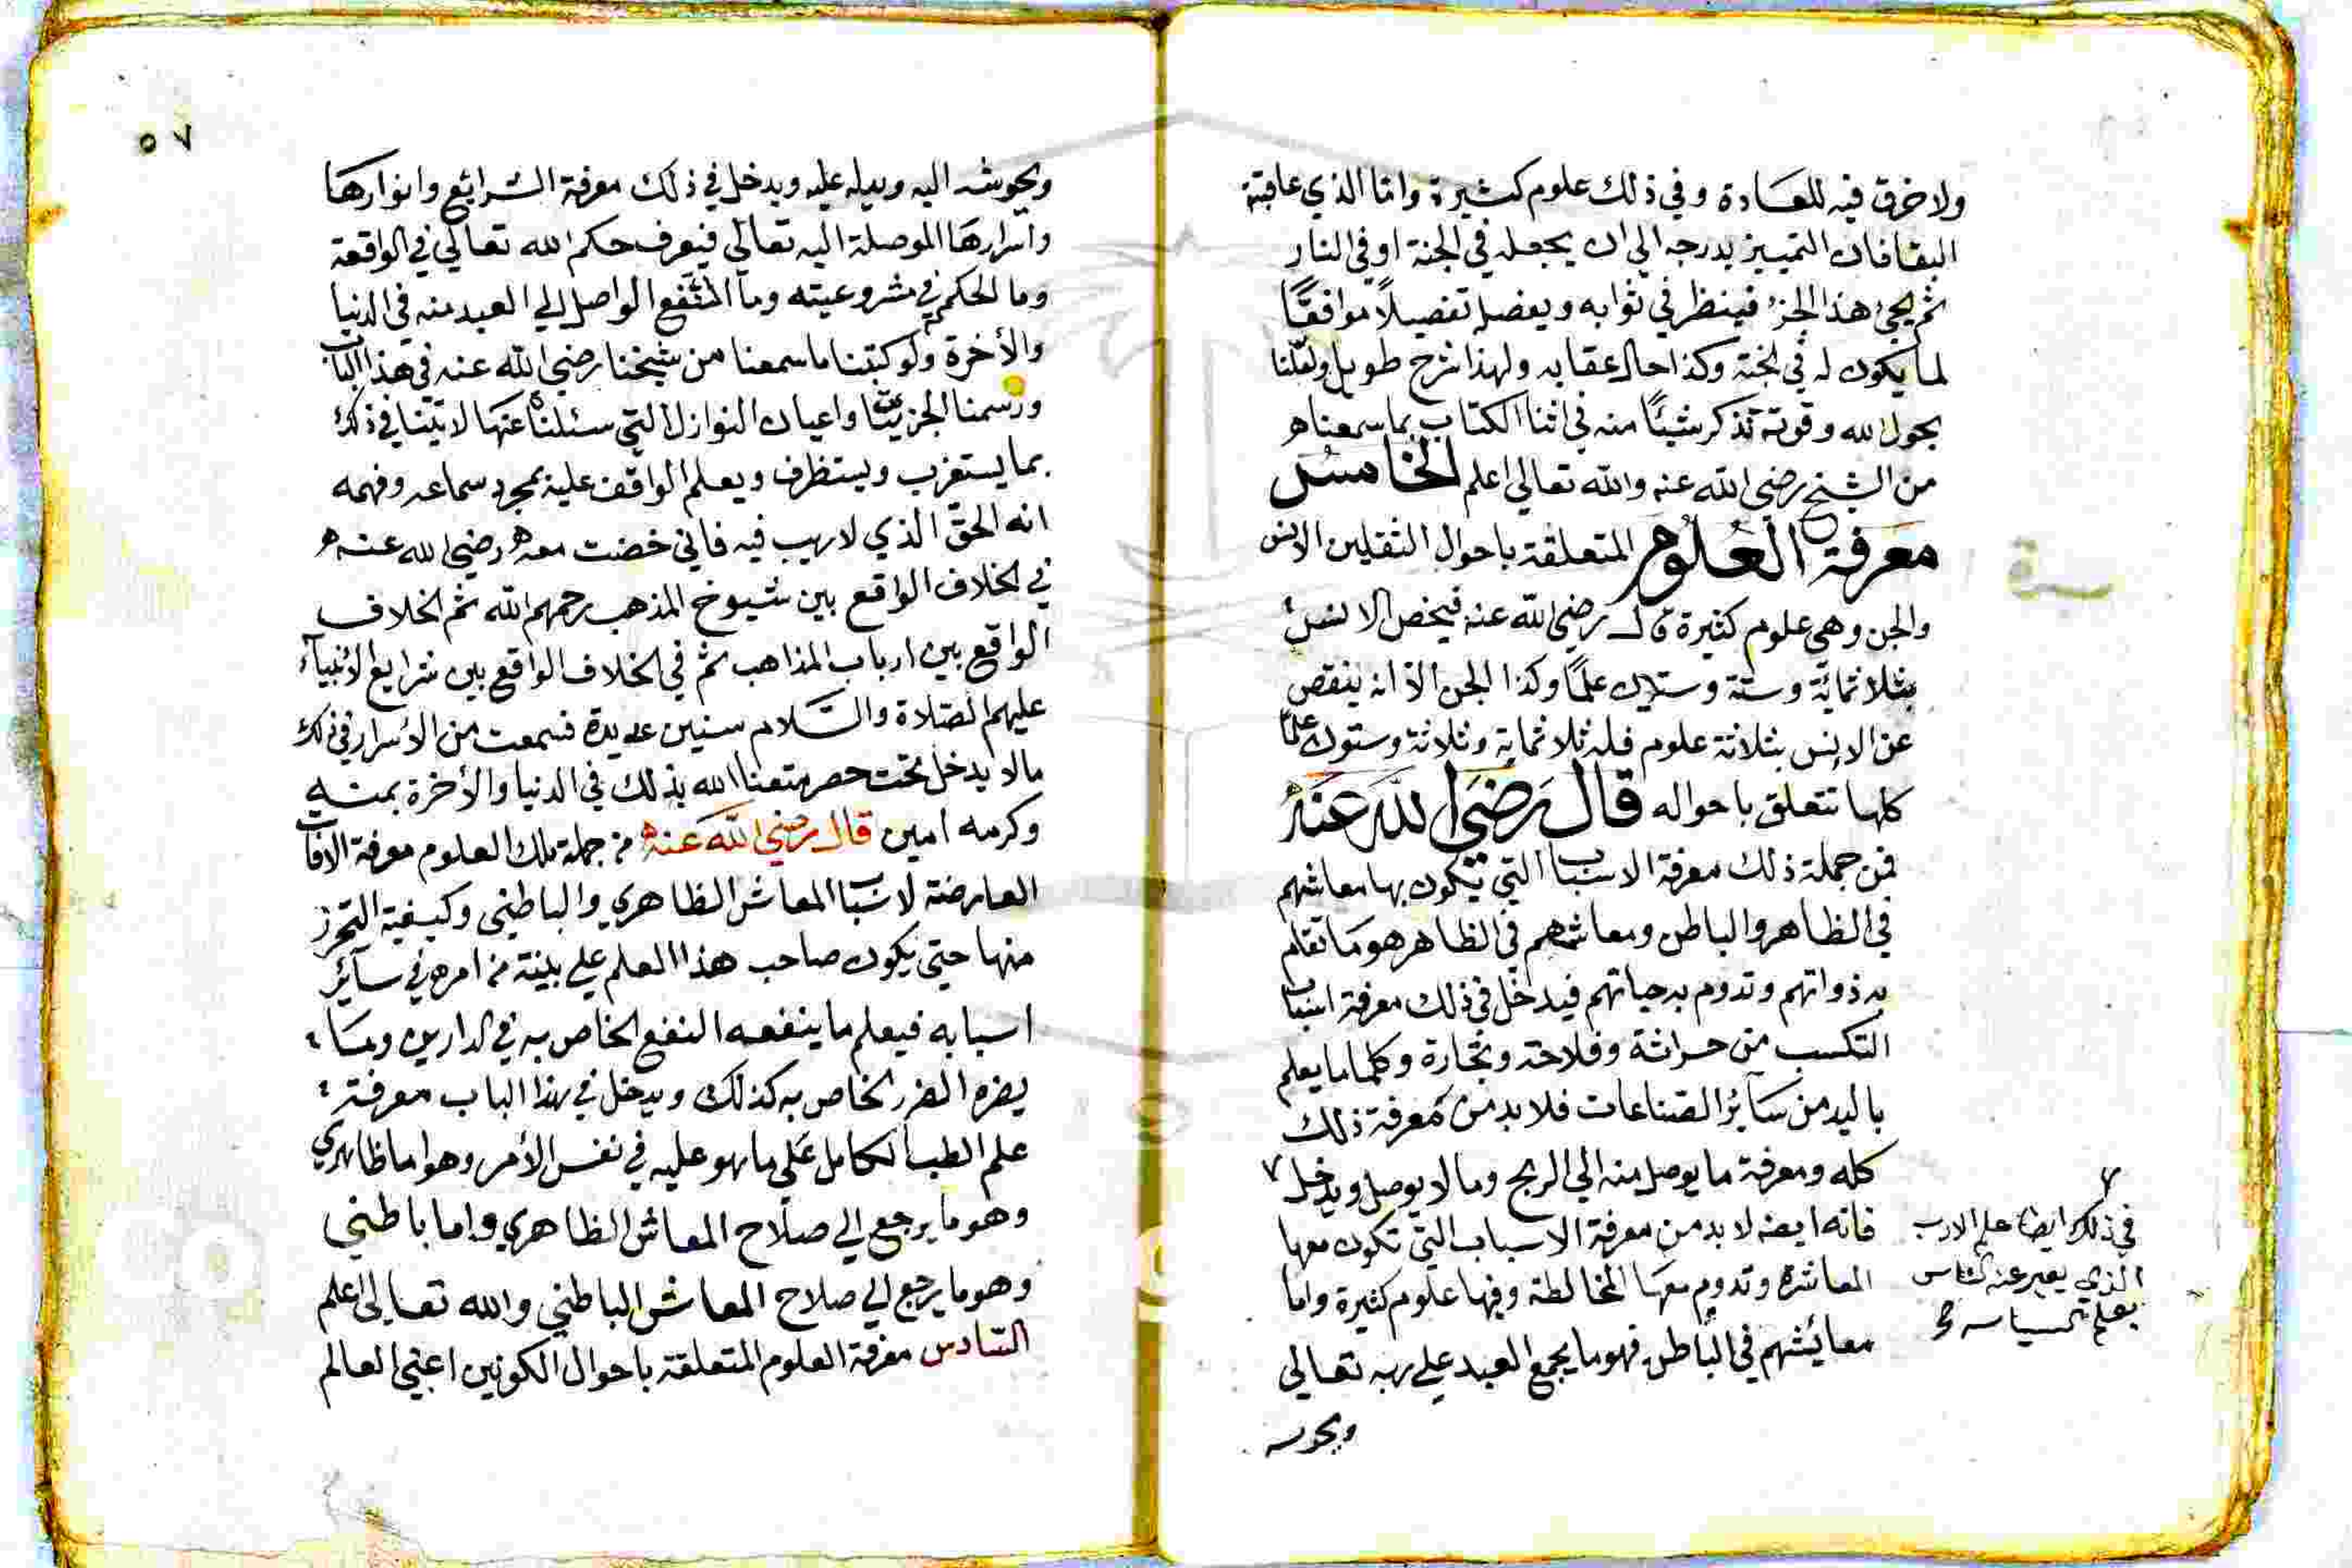 ولا خرق فيه للعادة وفي ذلك علوم كثيرة واما الذي عاقبته
البقا فان التمييز يدرجه الي ان يجعله في الجنة او في النار
ثم يجئ هذا الجزء فينظر في ثوابه ويفصله تفصيلاً موافقًا
لما يكون له في الجنة وكذا حال عقابه ولهذا شرح طويل ولعلنا
بحول الله وقوته نذكر شيئًا منه في اثنا الكتاب بما سمعناه
من الشيخ رضي الله عنه والله تعالي اعلم الخامس
معرفة العلوم المتعلقة باحوال الثقلين الانس
والجن وهي علوم كثيرة قال رضي الله عنه فيخص الانس
بثلاثمائة وستة وستين علمًا وكذا الجن الا انه ينقص
عن الانس بثلاثة علوم فله ثلاثماية وثلاثة وستون علمًا
كلها تتعلق باحواله قال رضي الله عنه
فمن جملة ذلك معرفة الاسباب التي تكون بها معاشهم
في الظاهر والباطن ومعاشهم في الظاهر هو ما تقام
به ذواتهم وتدوم به حياتهم فيدخل في ذلك معرفة اسباب
التكسب من حراثة وفلاحة وتجارة وكلما ما يعلم
باليد من سائر الصناعات فلا بد من معرفة ذلك
كله ومعرفة ما يوصل منه الي الربح وما لا يوصل ويدخل ٧
فانه ايضه لا بد من معرفة الاسباب التي تكون معها
المعاشرة وتدوم معها المخالطة وفيها علوم كثيرة واما
معائشهم في الباطن فهو ما يجمع العبد علي ربه تعالي
ويحوشه
٧
في ذلك ايضا علم الادب
الذي يعبر عنه الناس
بعلم السياسه صح
٥٧
ويحوشه اليه ويدله عليه ويدخل في ذلك معرفة الشرائع وانوارها
واسرارها الموصلة اليه تعالي فيعرف حكم الله تعالي في الواقعة
وما الحكم في مشروعيته وما النفع الواصل الي العبد منه في الدنيا
والأخرة ولو كتبنا ما سمعنا من شيخنا رضي الله عنه في هذا الباب
ورسمنا الجزئيات واعيان النوازل التي سئلناه عنها لاتينا في ذلك
بما يستغرب ويستظرف ويعلم الواقف عليه بمجرد سماعه وفهمه
انه الحق الذي لا ريب فيه فاني خضت معه رضي الله عنه
في الخلاف الواقع بين شيوخ المذهب رحمهم الله ثم الخلاف
الواقع بين ارباب المذاهب ثم في الخلاف الواقع بين شرايع الأنبيآء
عليهم الصلاة والسلام سنين عديدة فسمعت من الأسرار في ذلك
مالا يدخل تحت حصر متعنا الله بذلك في الدنيا والأخرة بمنه
وكرمه امين قال رضي الله عنه من جملة تلك العلوم معرفة الافات
العارضة لاسباب المعاش الظاهري والباطني وكيفية التحرز
منها حتي يكون صاحب هذا العلم علي بينة من امره في سآئر
اسبابه فيعلم ما ينفعه النفع الخاص به في الدارين وما
يضره الضرر الخاص به كذلك ويدخل في هذا الباب معرفة
علم الطب الكامل علي ما هو عليه في نفس الأمر وهو اما ظاهري
وهو ما يرجع الي صلاح المعاش الظاهري واما باطني
وهو ما يرجع الي صلاح المعاش الباطني والله تعالى اعلم
السادس معرفة العلوم المتعلقة باحوال الكونين اعني العالم